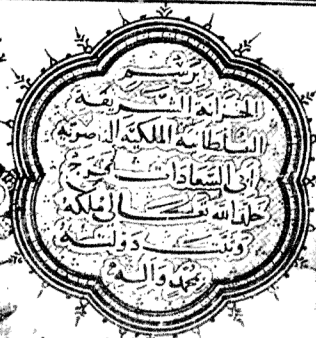 برسم
الخزانة الشريفة
السلطانية الملكية الناصرية
ابى السعادات فرج
خلد الله تعالى ملكه
وثبت دولته
بمحمد وآله